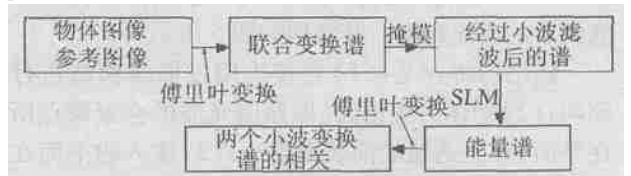 物体图像
参考图像
傅里叶变换
联合变换谱
掩模
经过小波滤
波后的谱
SLM
能量谱
傅里叶变换
两个小波变换
谱的相关